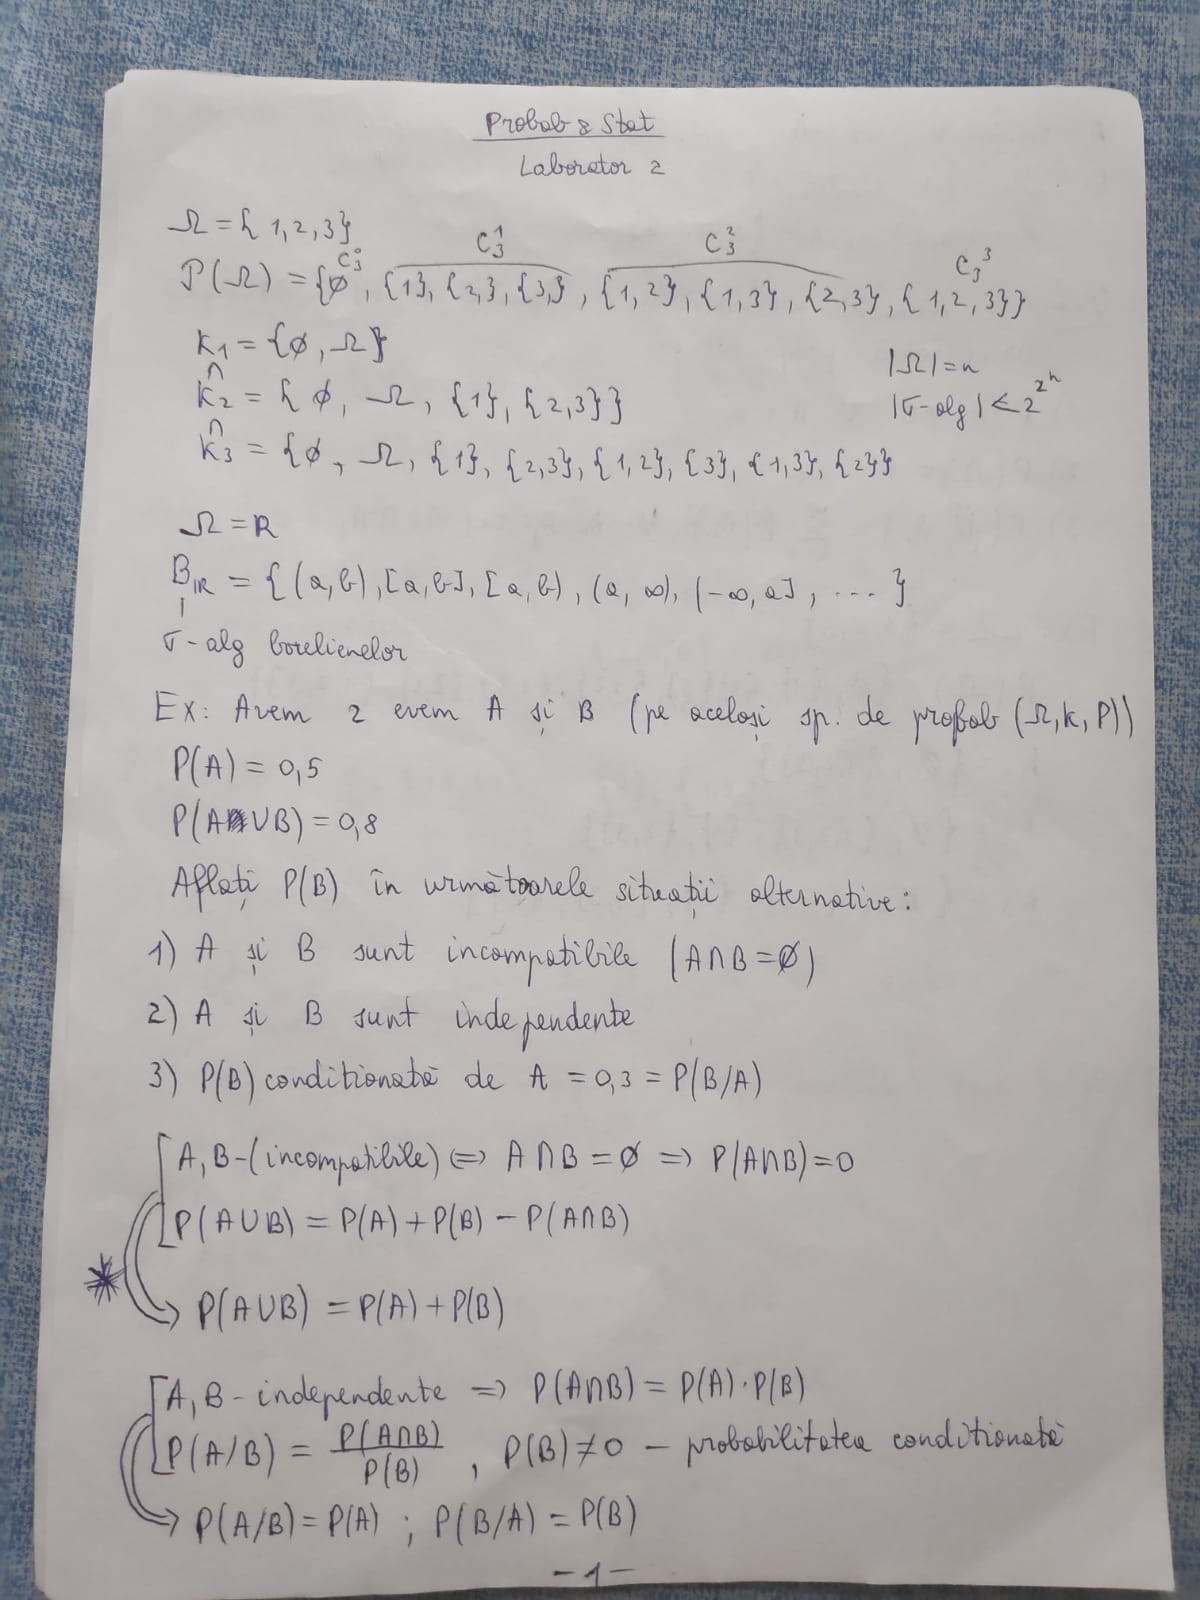 Probab & Stat
Laborator 2
Ω = {1,2,3}
C₃⁰ C₃¹ C₃² C₃³
P(Ω) = {∅, {1}, {2}, {3}, {1,2}, {1,3}, {2,3}, {1,2,3}}
K₁ = {∅, Ω}
∩
|Ω| = n
K₂ = {∅, Ω, {1}, {2,3}}
|σ-alg| < 2^2^n
∩
K₃ = {∅, Ω, {1}, {2,3}, {1,2}, {3}, {1,3}, {2}}
Ω = R
B_IR = {(a,b), [a,b], [a,b), (a,∞), (-∞,a], ... }
|
σ-alg borelienelor
Ex: Avem 2 evem A și B (pe același sp. de probab (Ω, K, P))
P(A) = 0,5
P(A∪B) = 0,8
Aflați P(B) în următoarele situații alternative:
1) A și B sunt incompatibile (A∩B=∅)
2) A și B sunt independente
3) P(B) condiționată de A = 0,3 = P(B/A)
A, B-(incompatibile) ⇔ A∩B = ∅ ⇒ P(A∩B)=0
P(A∪B) = P(A) + P(B) - P(A∩B)
* → P(A∪B) = P(A) + P(B)
A, B - independente ⇒ P(A∩B) = P(A)·P(B)
P(A/B) = P(A∩B)/P(B), P(B)≠0 - probabilitatea condiționată
→ P(A/B) = P(A) ; P(B/A) = P(B)
-1-